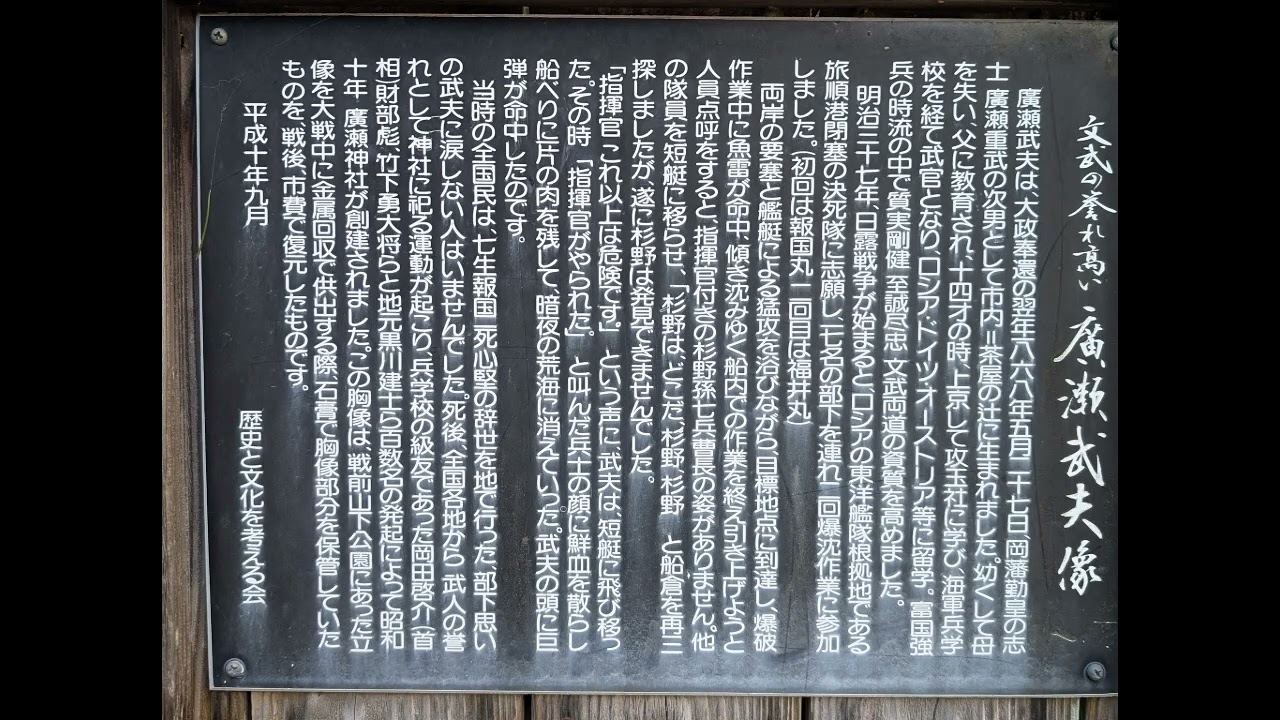 文武の誉れ高い 廣瀬武夫像
廣瀬武夫は、大政奉還の翌年一八六八年五月二十七日、岡藩勤皇の志
士 廣瀬重武の次男として市内＝茶屋の辻に生まれました。幼くして母
を失い、父に教育され、十四才の時、上京して攻玉社に学び、海軍兵学
校を経て武官となり、ロシア・ドイツ・オーストリア等に留学。富国強
兵の時流の中で質実剛健 至誠尽忠 文武両道の資質を高めました。
明治三十七年、日露戦争が始まるとロシアの東洋艦隊根拠地である
旅順港閉塞の決死隊に志願し、一七名の部下を連れ二回爆沈作業に参加
しました。（初回は報国丸 二回目は福井丸）
両岸の要塞と艦艇による猛攻を浴びながら、目標地点に到達し、爆破
作業中に魚雷が命中、傾き沈みゆく船内での作業を終え引き上げようと
人員点呼をすると、指揮官付きの杉野孫七兵曹長の姿がありません。他
の隊員を短艇に移らせ、「杉野は、どこだ、杉野、杉野 と船倉を再三
探しましたが、遂に杉野は発見できませんでした。
「指揮官 これ以上は危険です。」 という声に、武夫は、短艇に飛び移っ
た。その時 「指揮官がやられた。」 と叫んだ兵士の顔に鮮血を散らし
船べりに一片の肉を残して、暗夜の荒海に消えていった。武夫の頭に巨
弾が命中したのです。
当時の全国民は、七生報国一死心堅の辞世を地で行った、部下思い
の武夫に涙しない人はいませんでした。死後、全国各地から 武人の誉
れとして神社に祀る運動が起こり、兵学校の級友であった岡田啓介（首
相）財部彪、竹下勇大将らと地元黒川建士ら百数名の発起によって昭和
十年 廣瀬神社が創建されました。この胸像は、戦前山下公園にあった立
像を大戦中に金属回収で供出する際、石膏で胸像部分を保管していた
ものを、戦後、市費で復元したものです。
平成十年九月 歴史と文化を考える会